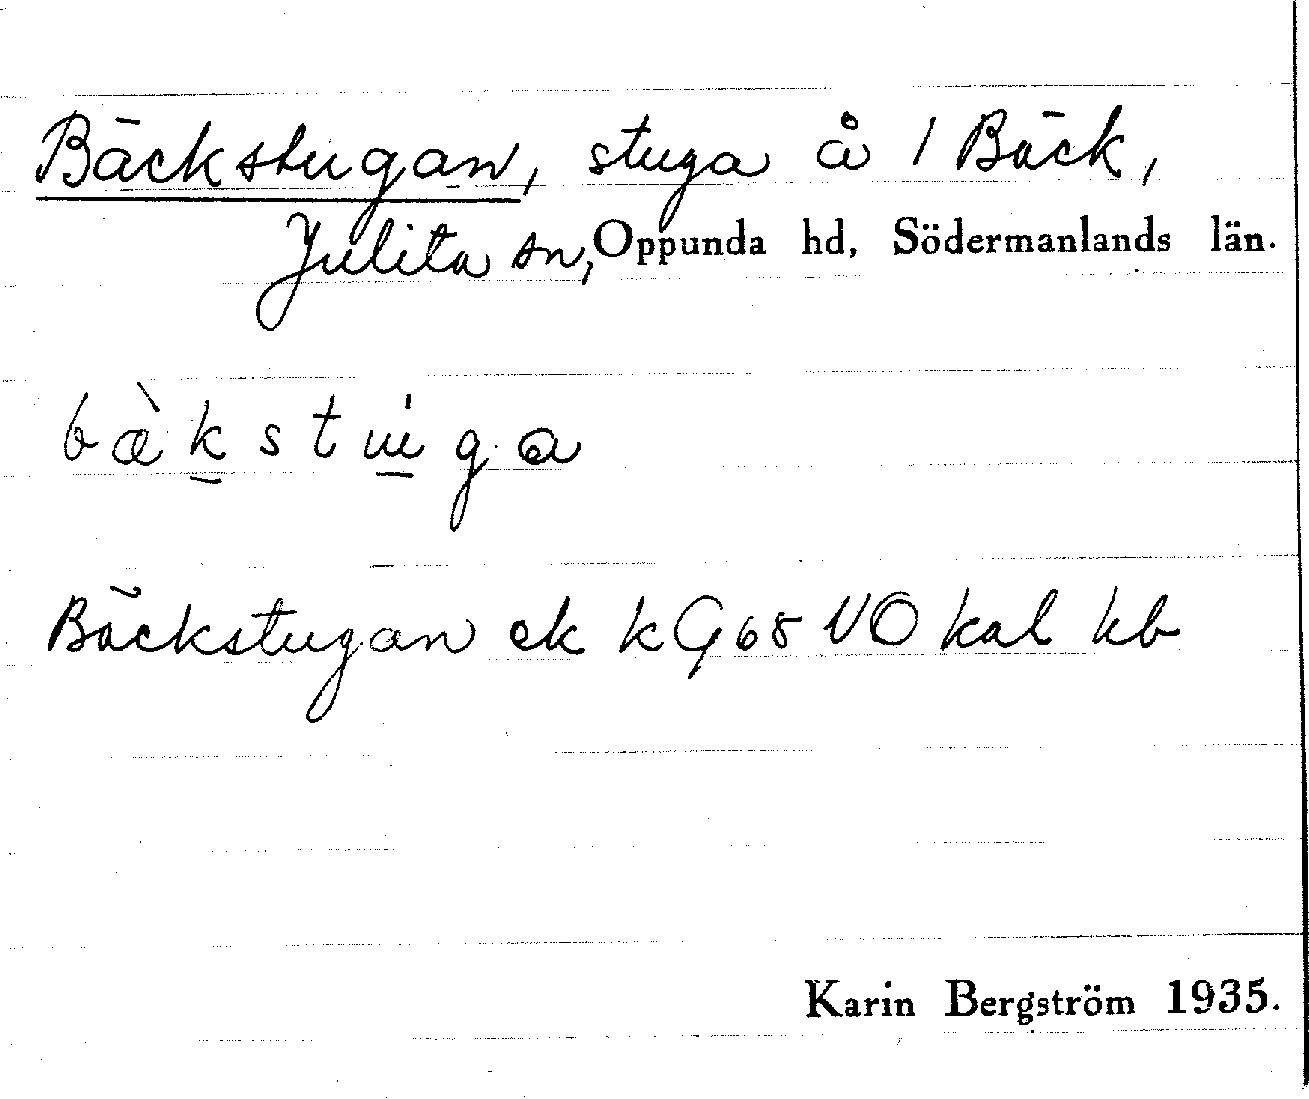 Bäckstugan, stuga å 1 Bäck,
Julita sn, Oppunda hd, Södermanlands län.
bæ̀kstuga
Bäckstugan ek kG65 VO kal kb
Karin Bergström 1935.